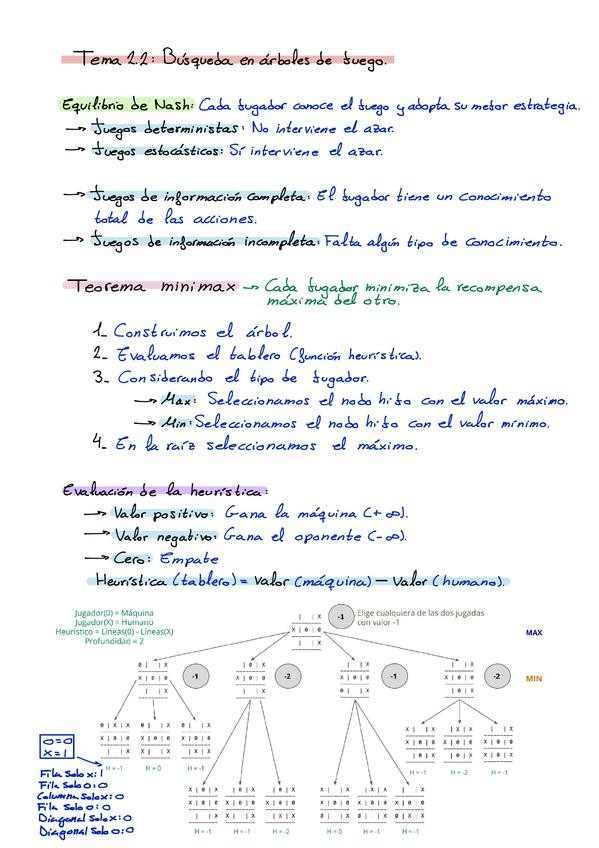 Tema 2.2: Búsqueda en árboles de juego.
Equilibrio de Nash: Cada jugador conoce el juego y adopta su mejor estrategia.
→ Juegos deterministas: No interviene el azar.
→ Juegos estocásticos: Sí interviene el azar.
→ Juegos de información completa: El jugador tiene un conocimiento
total de las acciones.
→ Juegos de información incompleta: Falta algún tipo de conocimiento.
Teorema minimax → Cada jugador minimiza la recompensa
máxima del otro.
1_ Construimos el árbol.
2_ Evaluamos el tablero (función heurística).
3_ Considerando el tipo de jugador.
→ Max: Seleccionamos el nodo hijo con el valor máximo.
→ Min: Seleccionamos el nodo hijo con el valor mínimo.
4_ En la raíz seleccionamos el máximo.
Evaluación de la heurística:
→ Valor positivo: Gana la máquina (+∞).
→ Valor negativo: Gana el oponente (-∞).
→ Cero: Empate
Heurística (tablero) = Valor (máquina) — Valor (humano).
Jugador(0) = Máquina
Jugador(X) = Humano
Heurístico = Líneas(0) - Líneas(X)
Profundidad = 2
-1
Elige cualquiera de las dos jugadas
con valor -1
MAX
-1
-2
-1
-2
MIN
O=0
X=1
H = -1
H = 0
H = -1
H = -1
H = -2
H = -1
Fila Solo x: 1
Fila Solo O: 0
Columna Solo x: 0
Fila Solo O: 0
Diagonal Solo x: 0
Diagonal Solo O: 0
H = -1
H = -1
H = -2
H = 0
H = -1
H = -1